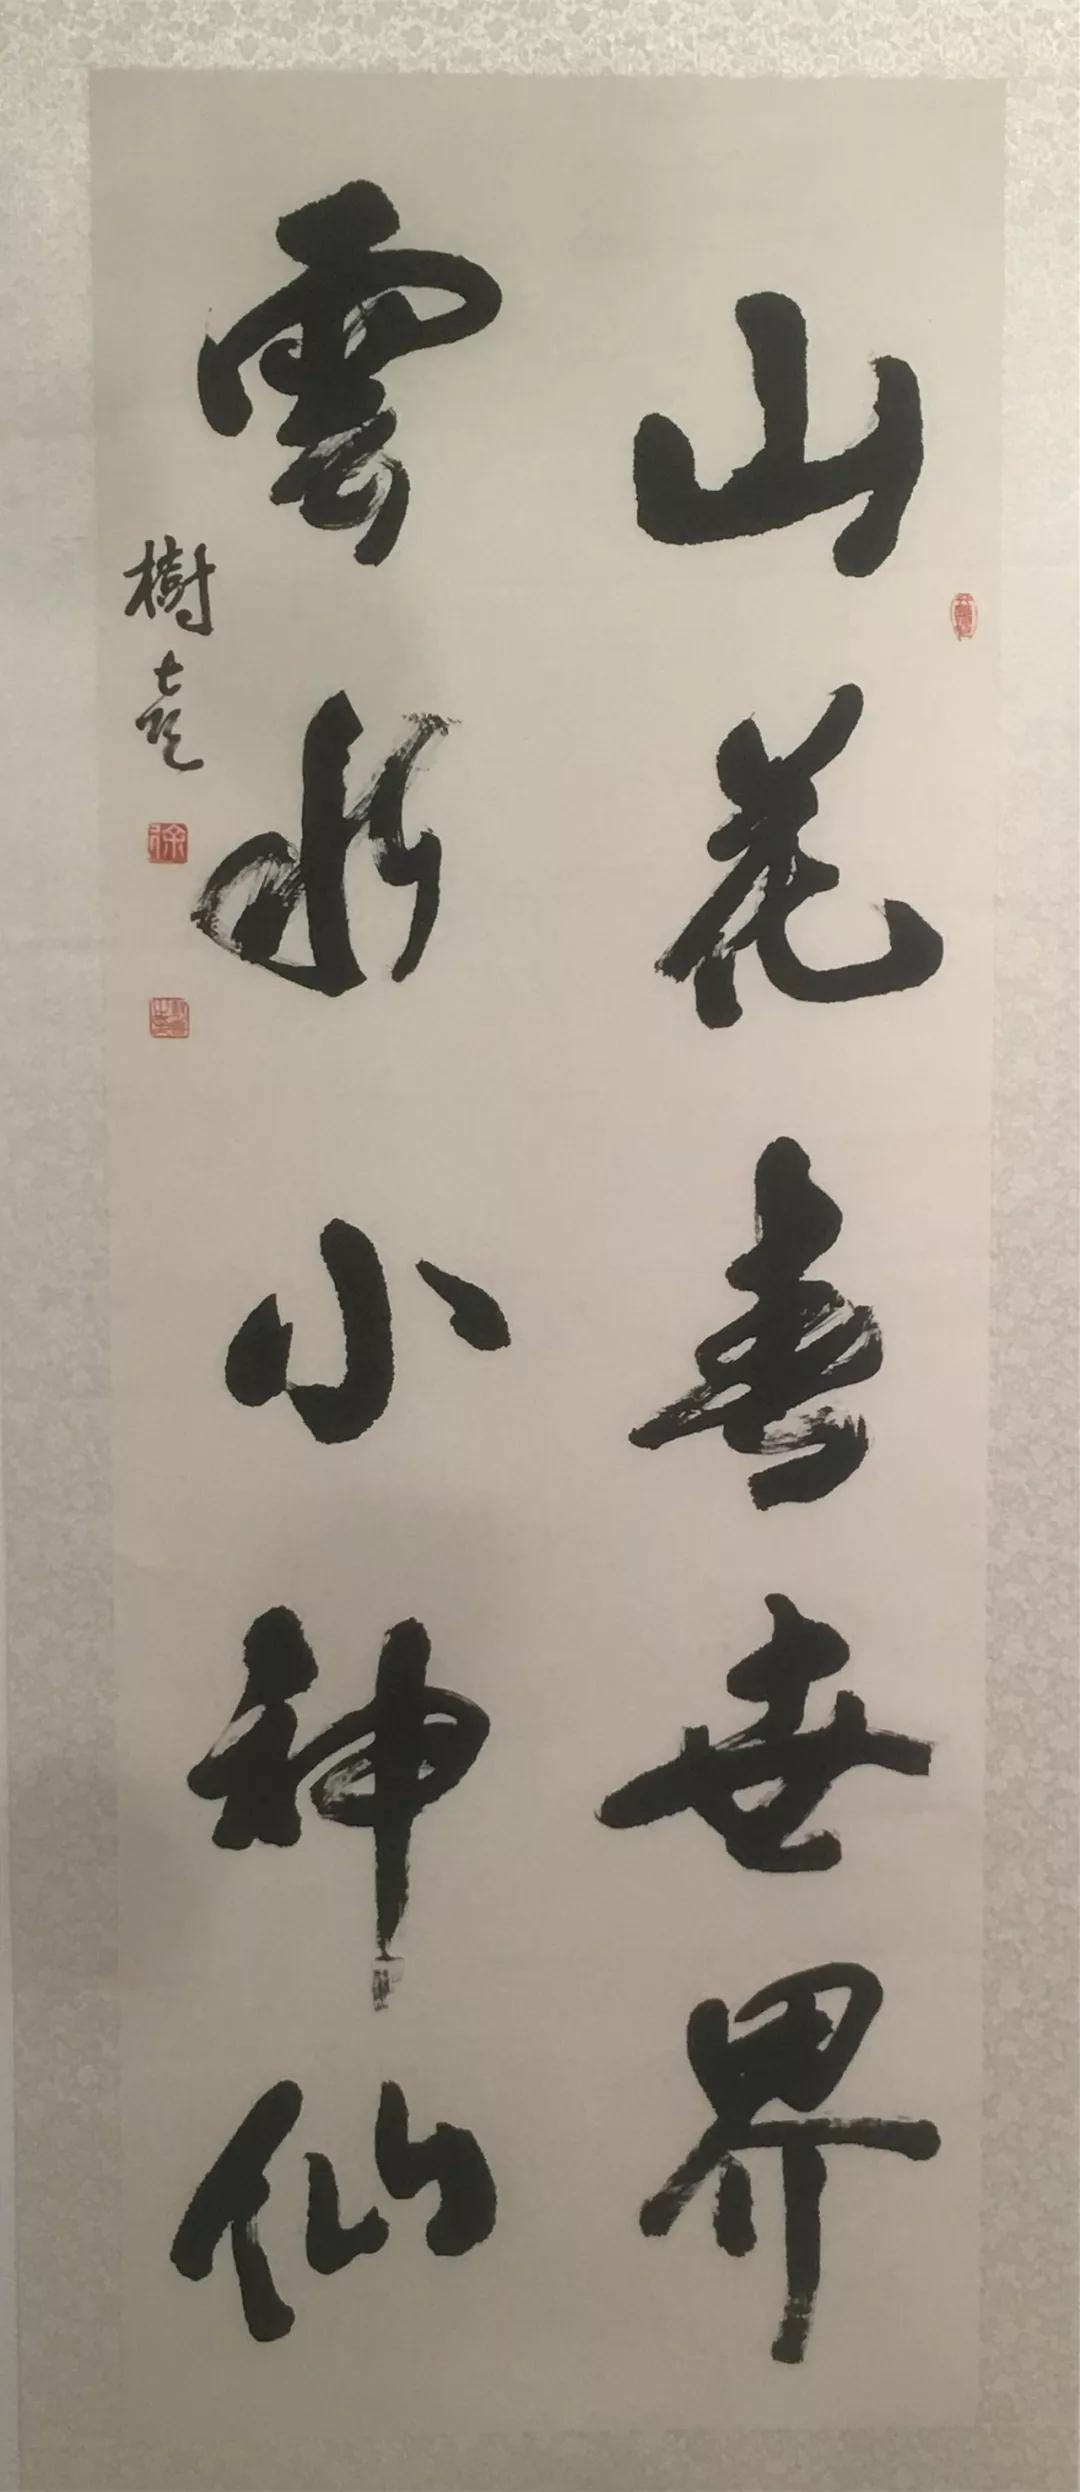 山花春世界
雲水小神仙
樹
徐